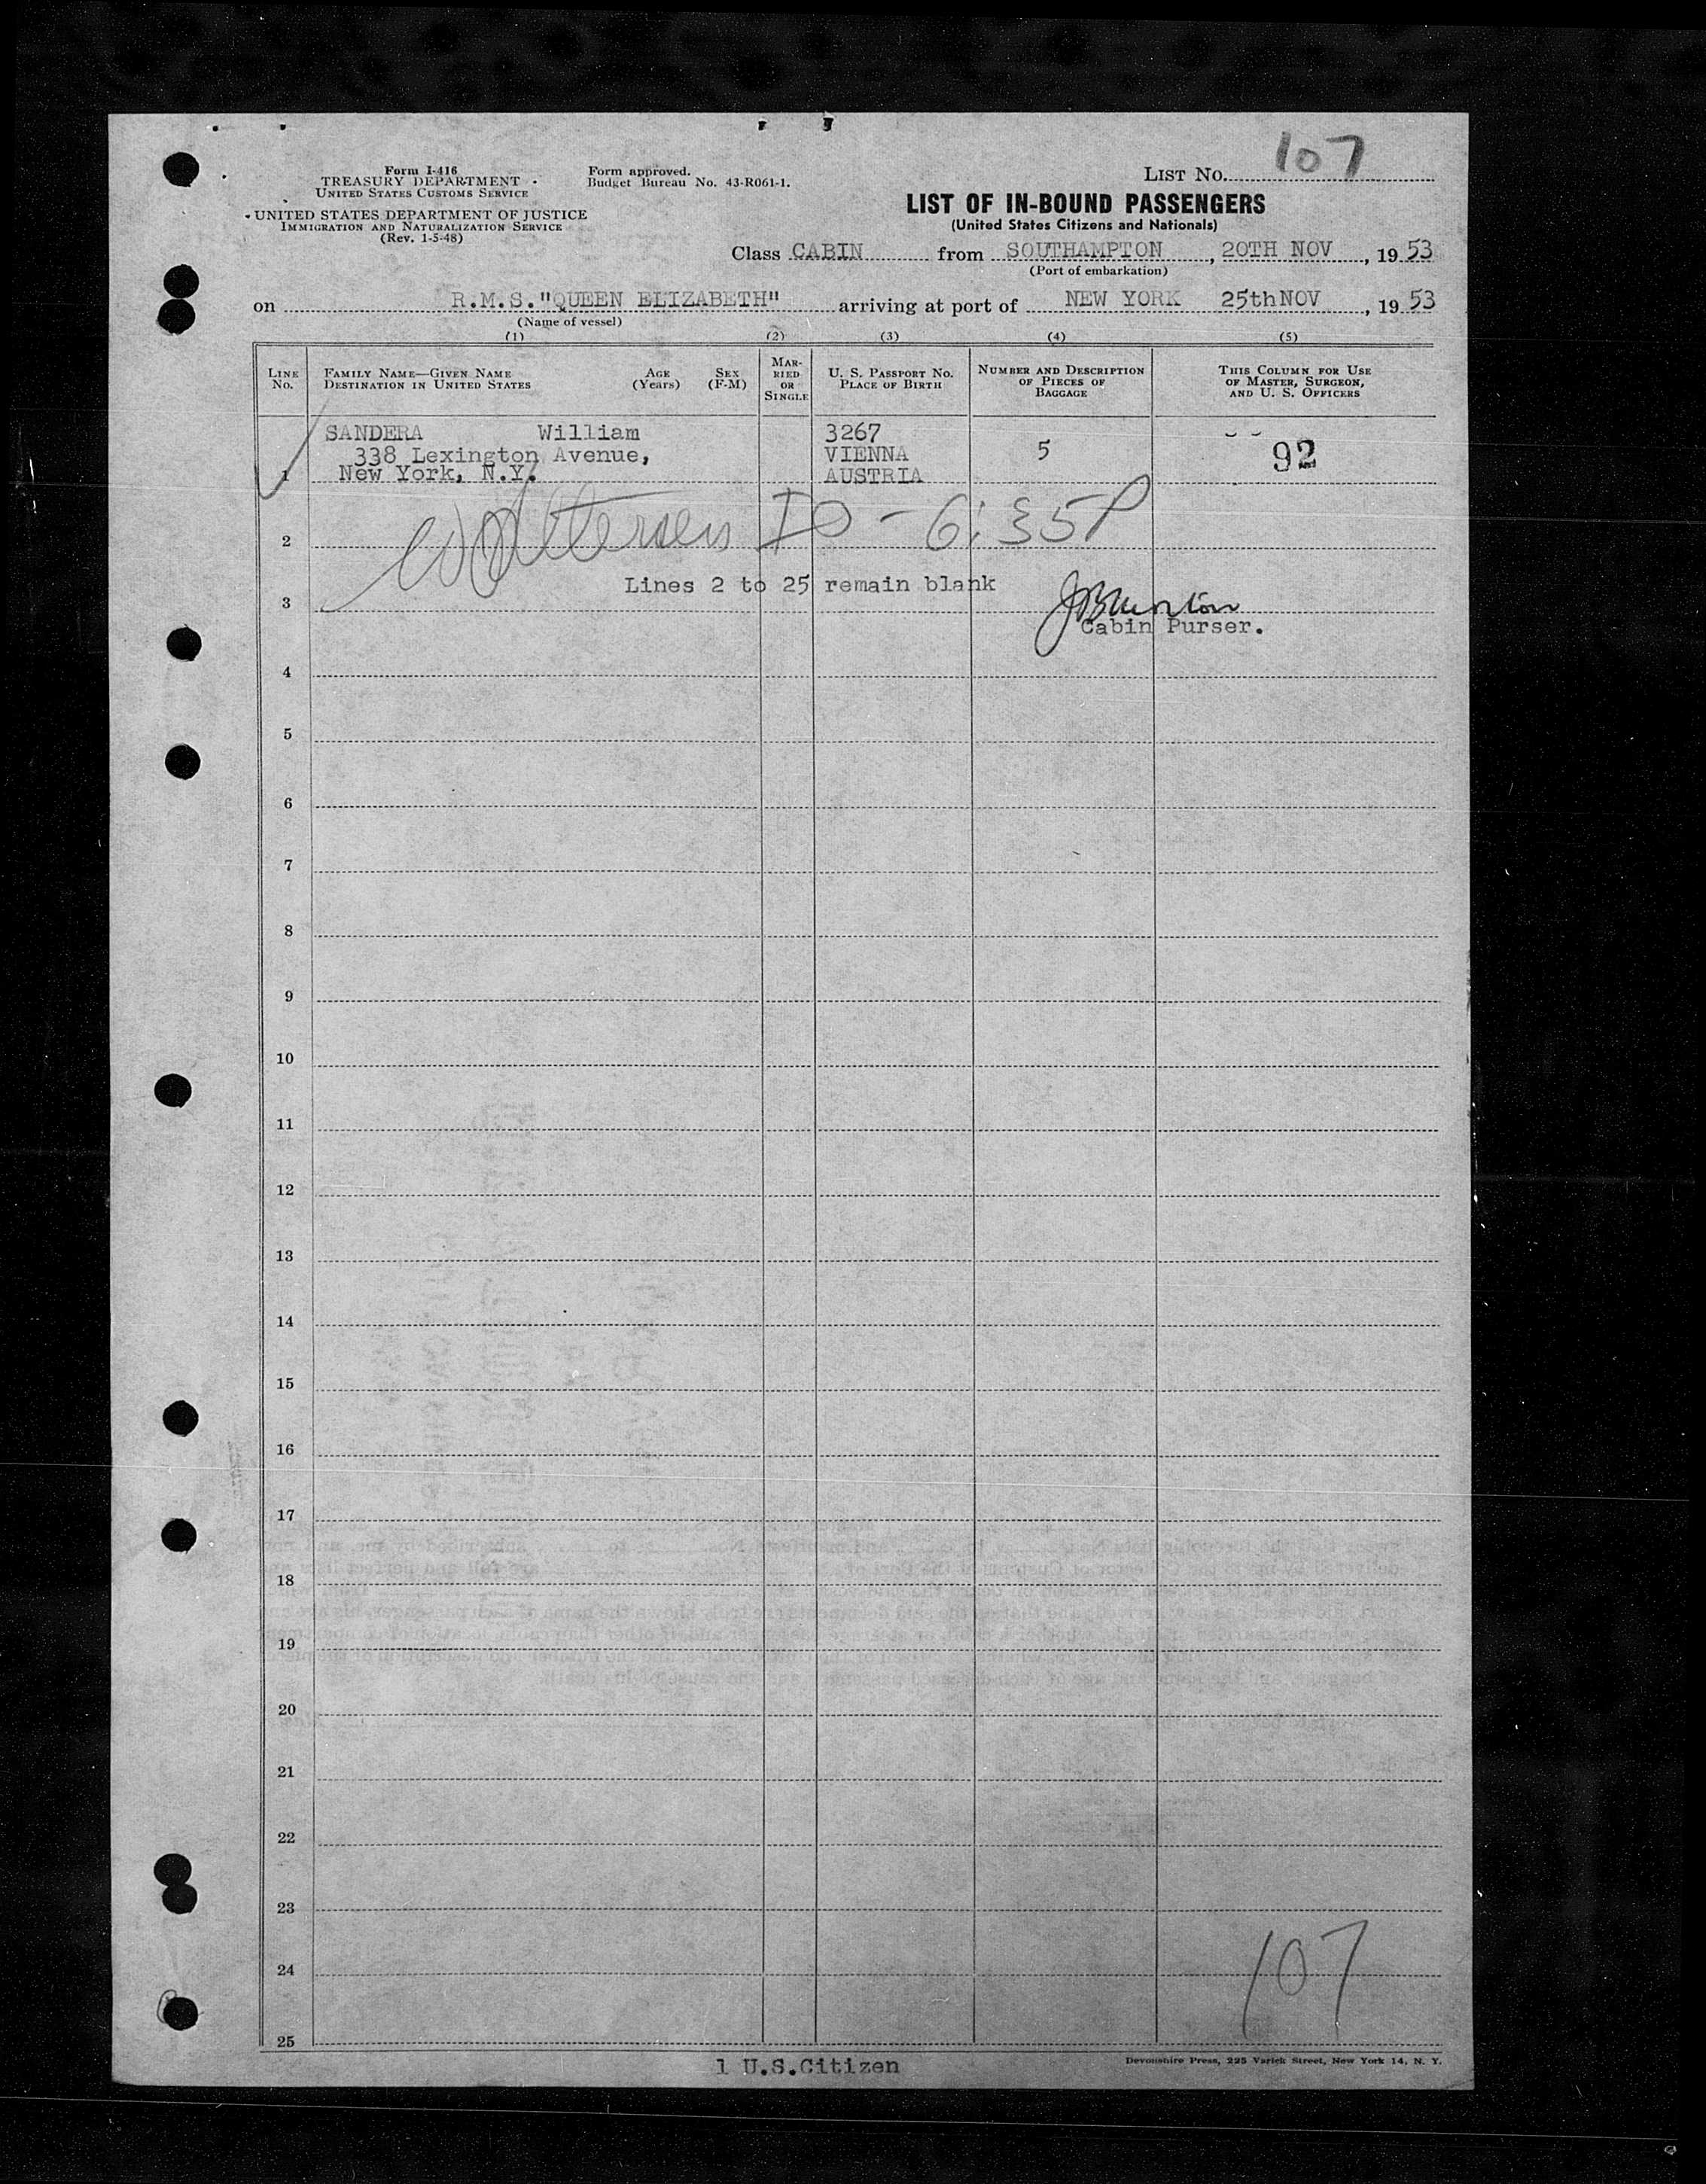 107
Form I-416
TREASURY DEPARTMENT
UNITED STATES CUSTOMS SERVICE
UNITED STATES DEPARTMENT OF JUSTICE
IMMIGRATION AND NATURALIZATION SERVICE
(Rev. 1-5-48)
Form approved.
Budget Bureau No. 43-R061-1.
LIST NO.
LIST OF IN-BOUND PASSENGERS
(United States Citizens and Nationals)
Class CABIN from SOUTHAMPTON, 20TH NOV, 19 53
(Port of embarkation)
on R.M.S."QUEEN ELIZABETH" arriving at port of NEW YORK 25thNOV, 19 53
(Name of vessel)
(1) (2) (3) (4) (5)
LINE NO.
FAMILY NAME—GIVEN NAME
DESTINATION IN UNITED STATES
AGE (Years)
SEX (F-M)
MARRIED OR SINGLE
U. S. PASSPORT NO.
PLACE OF BIRTH
NUMBER AND DESCRIPTION
OF PIECES OF
BAGGAGE
THIS COLUMN FOR USE
OF MASTER, SURGEON,
AND U. S. OFFICERS
SANDERA William 3267
338 Lexington Avenue, VIENNA 5 92
1 New York, N.Y. AUSTRIA
2 IO - 6:35P
Lines 2 to 25 remain blank
3
Cabin Purser.
4
5
6
7
8
9
10
11
12
13
14
15
16
17
18
19
20
21
22
23
24 107
25
1 U.S.Citizen
Devonshire Press, 225 Varick Street, New York 14, N. Y.